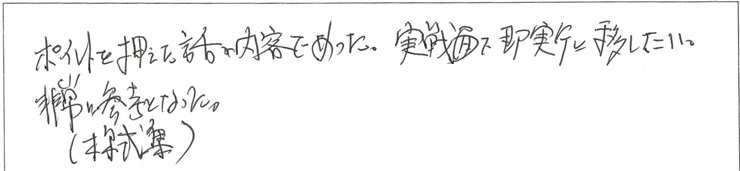 ポイントを押えた話の内容であった。実戦面で即実行に移したい。
非常に参考となった。
(株式集)